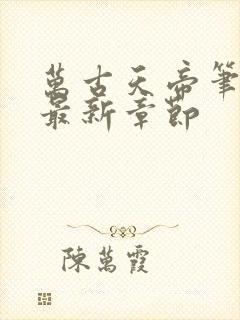 萬古天帝筆
最新章節
陳萬霞